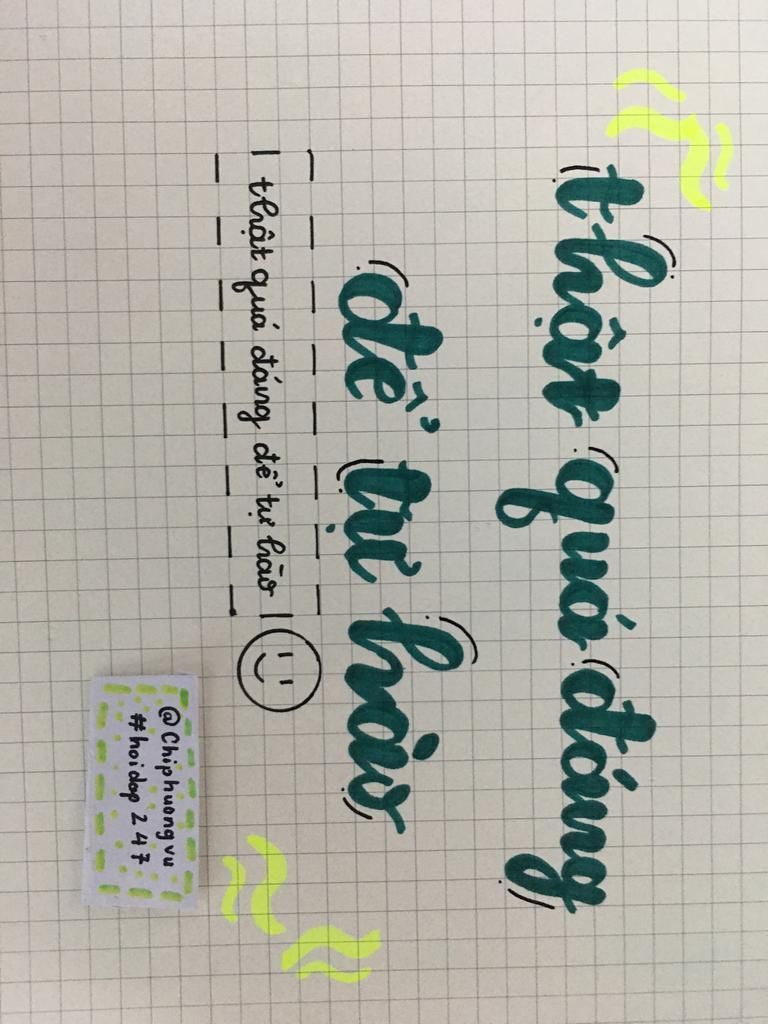 thật quá đáng
để tự hào
thật quá đáng để tự hào
@Chiphuongvu
#hoidap247